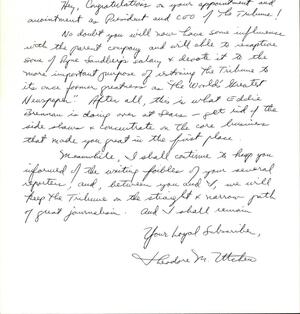 Hey, Congratulations on your appointment and
anointment as President and COO of The Tribune!
No doubt you will now have some influence
with the parent company and will able to
some of Ryne Sandberg's salary & devote it to the
more important purpose of restoring The Tribune to
its once former greatness as The World's Greatest
Newspaper." After all, this is what Eddie
Brennan is doing over at Sears - get rid of the
side shows & concentrate on the core business
that made you great in the first place
Meanwhile, I shall continue to keep you
informed of the writing foibles of your several
reporters, and, between you and I, we will
keep the Tribune on the straight & narrow path
of great journalism. And I shall remain
Your Loyal Subscriber,
Theodore M.